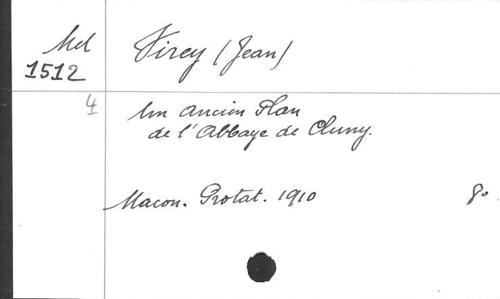 Mel Virey (Jean)
1512
4 Un Ancien Plan
de l'Abbaye de Cluny.
Macon. Protat. 1910 8o